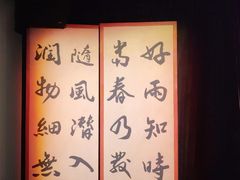 好雨知時
當春乃發
隨風潛入
潤物細無